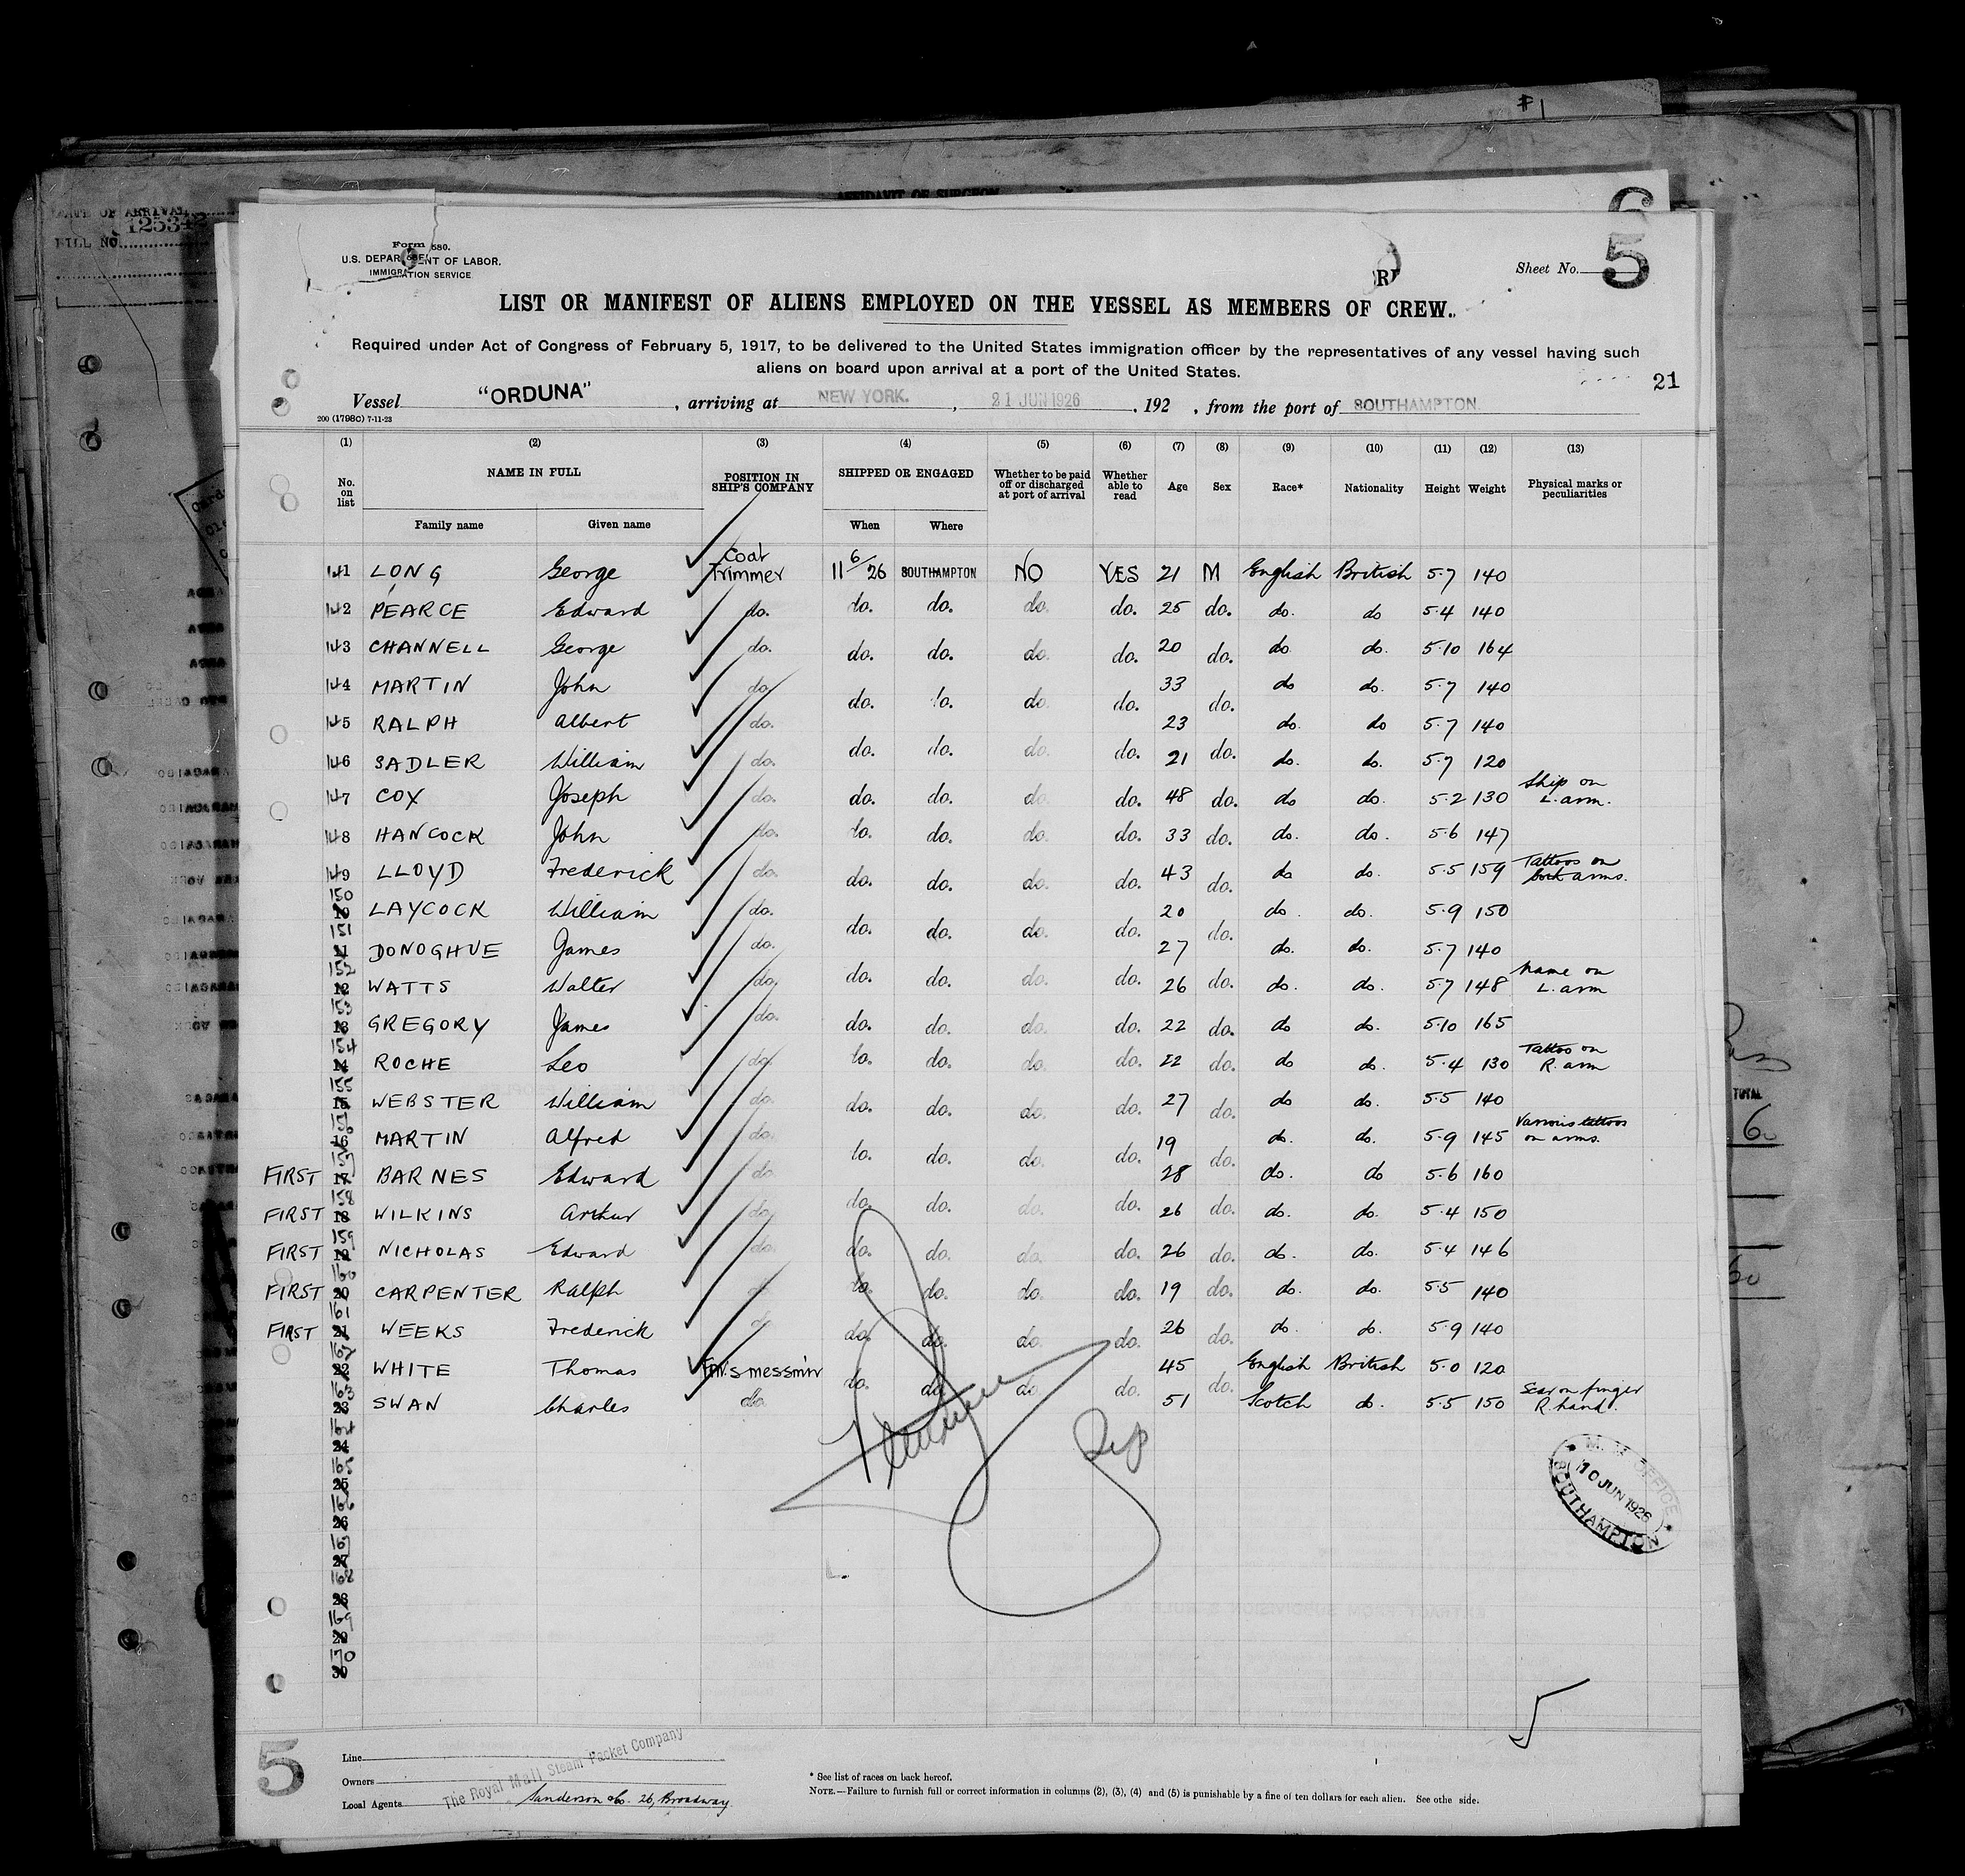 #1
AFFIDAVIT OF SURGEON
DATE OF ARRIVAL
125342
BILL NO.
6
Form 680.
U.S. DEPARTMENT OF LABOR.
IMMIGRATION SERVICE
Sheet No. 5
LIST OR MANIFEST OF ALIENS EMPLOYED ON THE VESSEL AS MEMBERS OF CREW.
Required under Act of Congress of February 5, 1917, to be delivered to the United States immigration officer by the representatives of any vessel having such
aliens on board upon arrival at a port of the United States.
21
Vessel "ORDUNA", arriving at NEW YORK., 21 JUN 1926, 192 , from the port of SOUTHAMPTON
200 (1798C) 7-11-23
(1) (2) (3) (4) (5) (6) (7) (8) (9) (10) (11) (12) (13)
No. on list NAME IN FULL POSITION IN SHIP'S COMPANY SHIPPED OR ENGAGED Whether to be paid off or discharged at port of arrival Whether able to read Age Sex Race* Nationality Height Weight Physical marks or peculiarities
Family name Given name When Where
141 LONG George Coal Trimmer 11 6/26 SOUTHAMPTON NO YES 21 M English British 5.7 140
142 PEARCE Edward do. do. do. do. do. 25 do. do. do 5.4 140
143 CHANNELL George do. do. do. do. do. 20 do. do. do. 5.10 164
144 MARTIN John do. do. do. do. do. 33 do. do do. 5.7 140
145 RALPH Albert do. do. do. do. do. 23 do. do. do 5.7 140
146 SADLER William do. 21 do. do. 5.7 120
147 COX Joseph do. do. do. do. do. 48 do. do do. 5.2 130 Ship on L. arm.
148 HANCOCK John do. do. do. do. do. 33 do. do. do. 5.6 147
149 LLOYD Frederick do. do. do. do. do. 43 do. do do. 5.5 159 Tattoos on both arms.
150 10 LAYCOCK William do. do. do. do. do. 20 do. do. do. 5.9 150
151 11 DONOGHUE James do. 27 do. do. 5.7 140
152 12 WATTS Walter do. do. do. do. do. 26 do. do. do. 5.7 148 Name on L. arm
153 13 GREGORY James do. do. do. do. do. 22 do. do do. 5.10 165
154 14 ROCHE Leo do. do. do. do. do. 22 do. do do. 5.4 130 Tattoo on R. arm
155 15 WEBSTER William do. do. do. do. do. 27 do. do do. 5.5 140
156 16 MARTIN Alfred do. do. do. do. do. 19 do. do. do. 5.9 145 Various tattoos on arms.
FIRST 157 17 BARNES Edward do. 28 do. do 5.6 160
FIRST 158 18 WILKINS Arthur do. do. do. do. do. 26 do. do. do. 5.4 150
FIRST 159 19 NICHOLAS Edward do. do. do. do. do. 26 do. do. do. 5.4 146
FIRST 160 20 CARPENTER Ralph do. do. do. do. do. 19 do. do. do. 5.5 140
FIRST 161 21 WEEKS Frederick do. do. do. do. do. 26 do. do. do. 5.9 140
162 22 WHITE Thomas messm'n do. do. do. do. 45 do. English British 5.0 120
163 23 SWAN Charles do. 51 Scotch do. 5.5 150 Scar on finger R. hand.
164 24
165 25
166 26
167 27
168 28
169 29
170 30
M. M. OFFICE
10 JUN 1926
SOUTHAMPTON
TOTAL
5
Line
Owners The Royal Mail Steam Packet Company
Local Agents Sanderson & Co. 26, Broadway.
* See list of races on back hereof.
NOTE.—Failure to furnish full or correct information in columns (2), (3), (4) and (5) is punishable by a fine of ten dollars for each alien. See othe side.